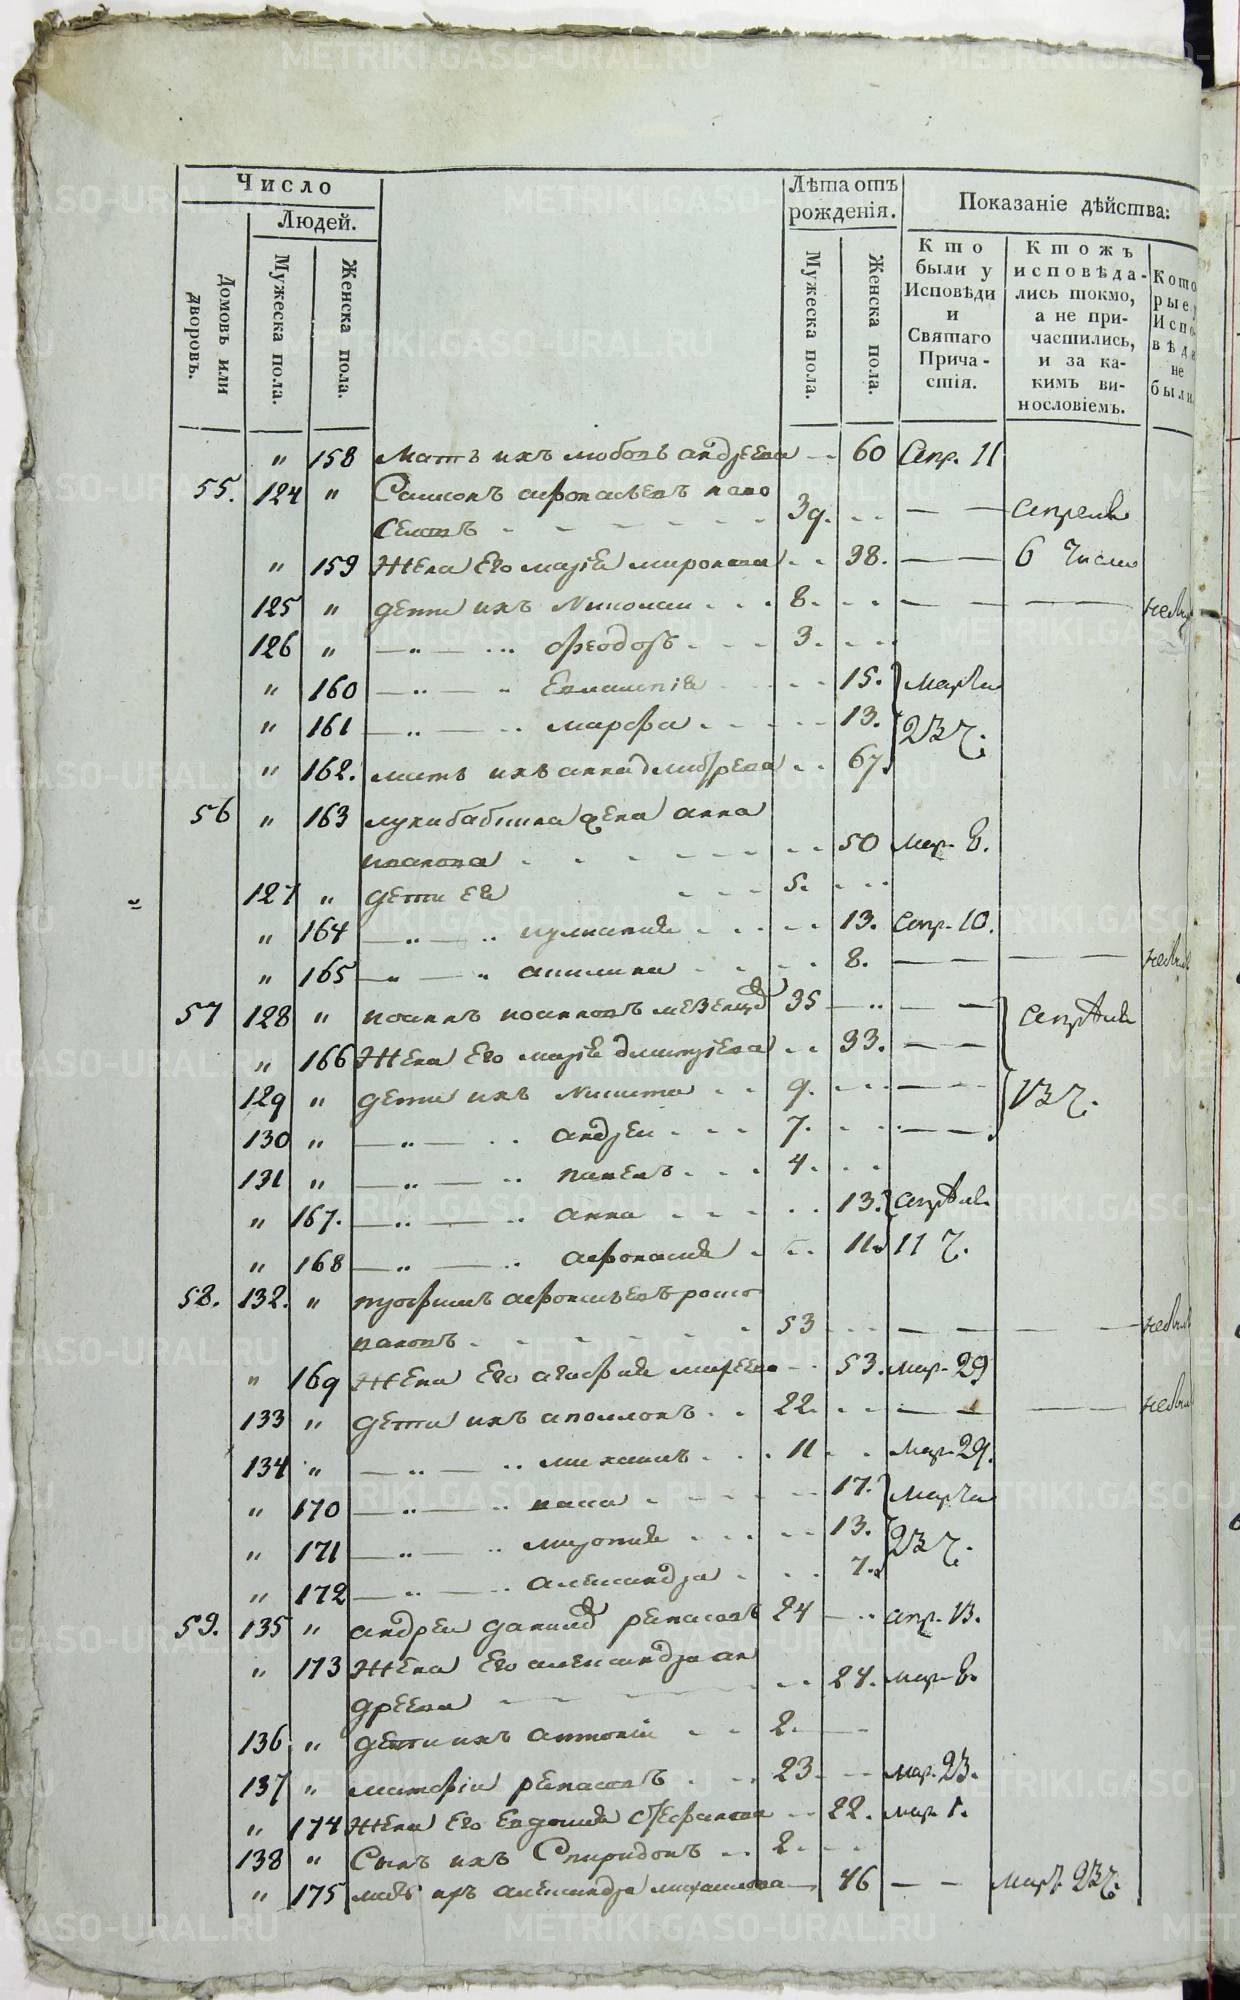 Число
Людей.
Домовъ или дворовъ.
Мужеска пола.
Женска пола.
Лѣта отъ рожденія.
Мужеска пола.
Женска пола.
Показаніе дѣйства:
Кто были у Исповѣди и Святаго Причастія.
Ктожъ исповѣдались токмо, а не причастились, и за какимъ винословіемъ.
Которые у Исповѣди не были.
" 158 мать ихъ любовь андреева 60 Апр. 11
55. 124 " Самсонъ афонасьевъ ново
селовъ 39. апреля
" 159 жена его марія миронова 38. 6 числа
125 " дети ихъ Николаи 8.
126 " феодоръ 3.
" 160 Евлампія 15. марта
" 161 марфа 13. 23 ч.
" 162. мать ихъ анна дмитрева 67.
56 " 163 жена анна
иванова 50 мар. 8.
127 " дети ея 5.
" 164 13. апр. 10.
" 165 акилина 8.
57 128 " иоаннъ иоанновъ 35 апрѣля
" 166 жена его марія димитріева 33.
129 " дети ихъ Никита 9. 13 ч.
130 " андреи 7.
131 " павелъ 4.
" 167. анна 13. апрѣля
" 168 афонасия 11. 11 ч.
58. 132. " трофимъ афонасьевъ
53
" 169 жена его агафия 53. мар. 29
133 " дети ихъ аполлонъ 22.
134 " михаилъ 11 мар. 29.
" 170 17. марта
" 171 13. 23 ч.
" 172 александра 7.
59. 135 " андреи данилов 24 апр. 13.
" 173 жена его александра ан
дреева 24. мар. 8.
136 " дети ихъ антоніи 2.
137 " 23. мар. 23.
" 174 жена его евдокия стефанова 22. мар. 1.
138 " Сынъ ихъ Спиридонъ 2.
" 175 мать ихъ александра михаилова 46 мар. 23 ч.
METRIKI.GASO-URAL.RU